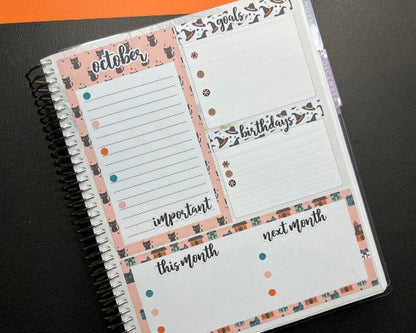 october
goals
birthdays
important
this month
next month